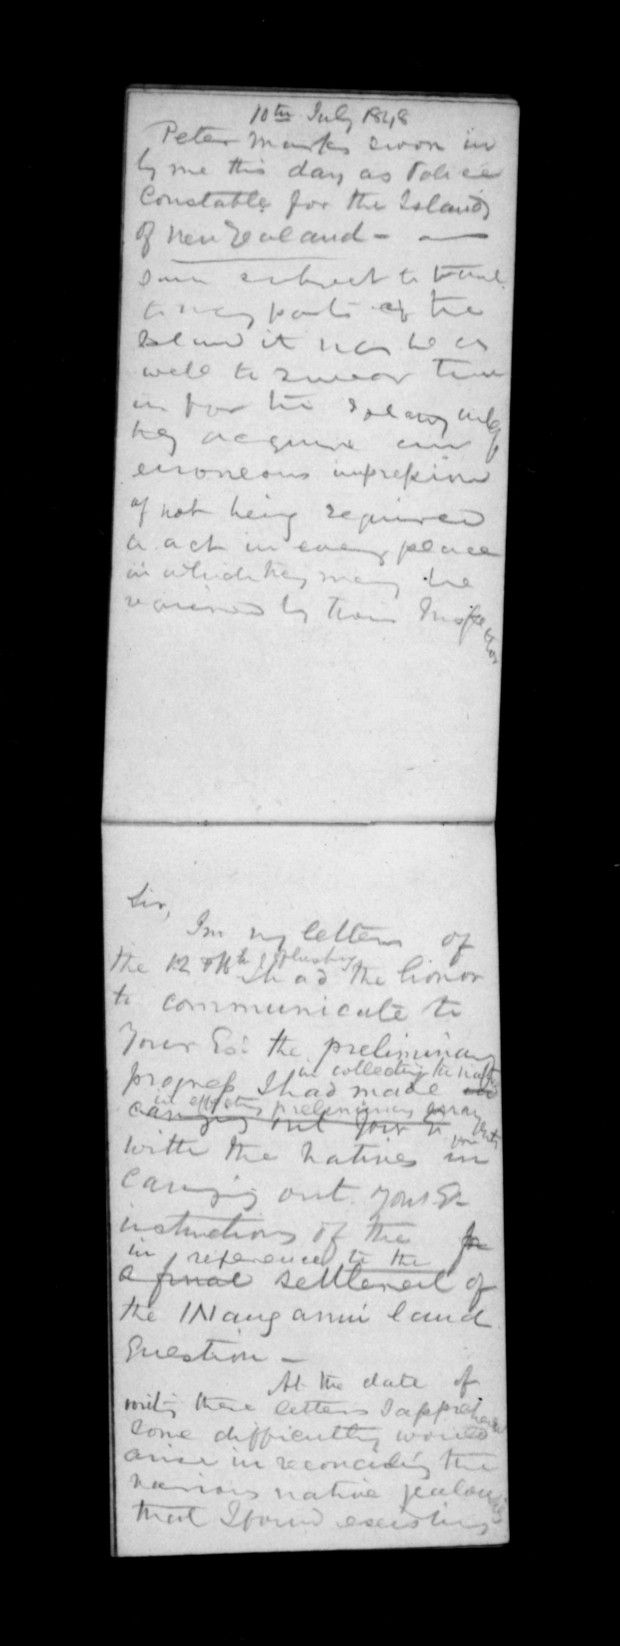 10th July 1848
Peter Marks sworn in
by me this day as Police
Constable for the Islands
of New Zealand -
subject to
to many parts of the
Island it may be as
well to swear them
in for the
they acquire an
erroneous impression
of not being required
to act in every place
in which they may be
required by their Inspector
Sir,
In my letters of
the 12 I had the honor
to communicate to
Your Ex: the preliminary
in collecting the
progress I had made
in effecting preliminary
carrying out your
with the Natives in
carrying out your Ex
instructions of the
in reference to the
a final settlement of
the Wanganui land
Question -
At the date of
writing these letters I apprehended
some difficulty would
arise in reconciling the
various native jealousies
that I found existing